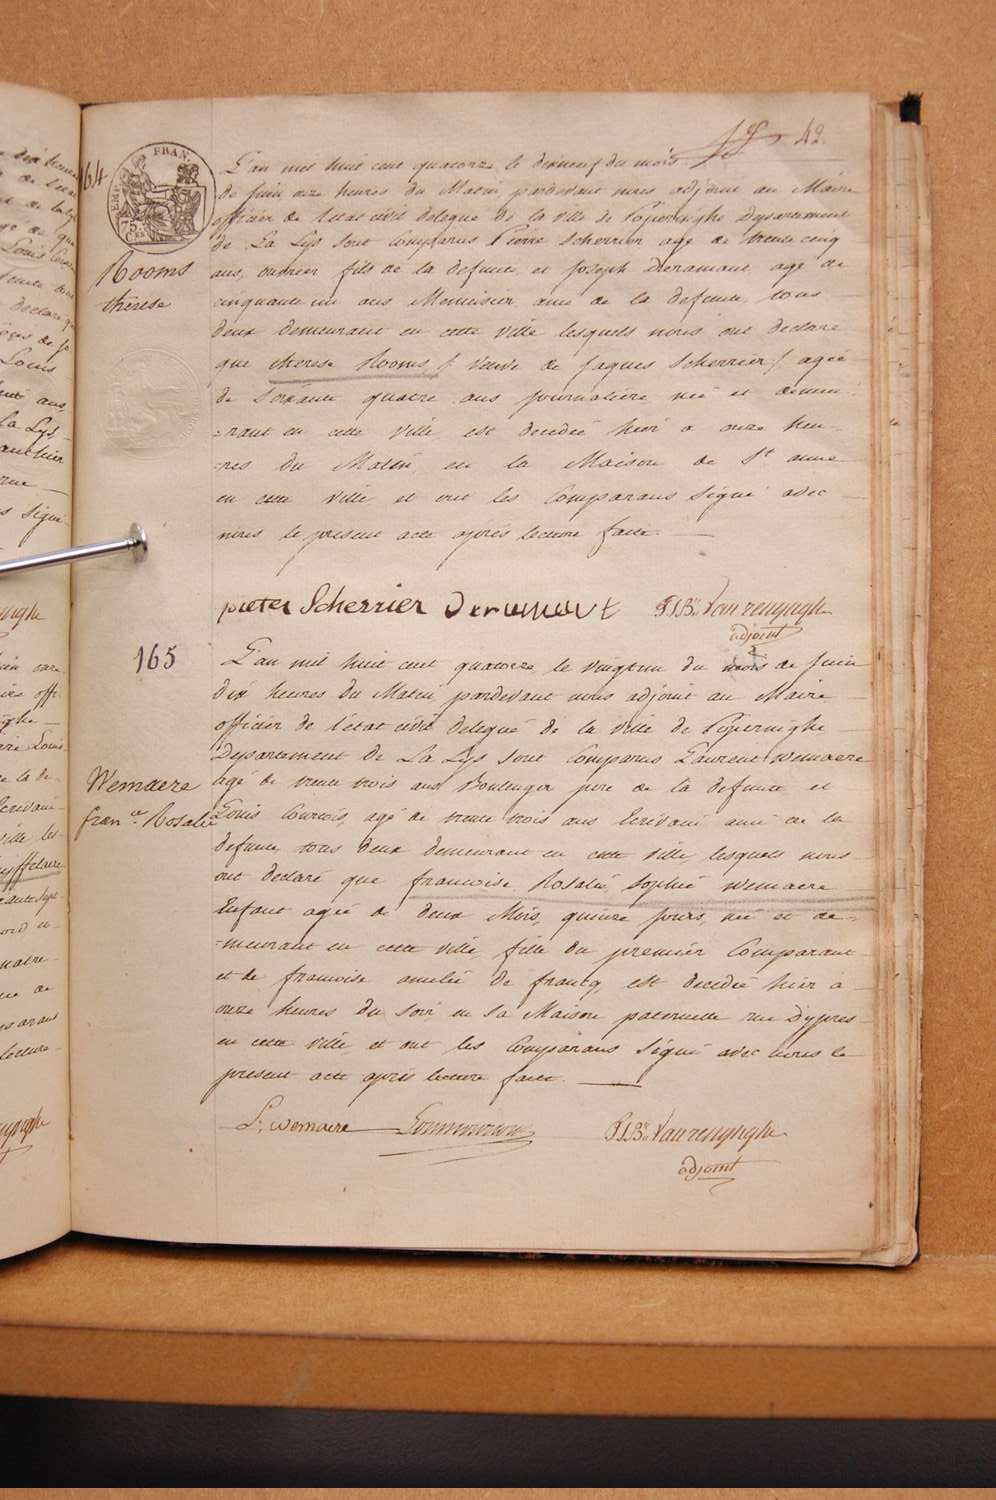 42
164
FRAN.
Rooms
thérèse
L'an mil huit cent quatorze le dixneuf du mois
de Juin onze heures du Matin pardevant nous adjoint au Maire
officier de l'état civil delegué de la ville de Poperinghe Departement
de La Lys sont Comparus Pierre Scherrier agé de trente cinq
ans, ouvrier fils de la defunte et Joseph Deramaut agé de
cinquante un ans Menuisier ami de la defunte, tous
deux demeurant en cette ville lesquels nous ont declaré
que therese Rooms, (veuve de Jaques Scherrier) agée
de soixante quatre ans journalière née et demeu-
=rant en cette ville est decedée hier a onze heu-
=res du Matin, en la Maison de St anne
en cette ville et ont les Comparans signé avec
nous le present acte après lecture faite.
pieter Scherrier Deramaut P.J.B. Vanrenynghe
adjoint
165
Wemaere
fran.ce Rosalie
L'an mil huit cent quatorze, le vingtun du mois de Juin
dix heures du Matin, pardevant nous adjoint au Maire
officier de l'état civil delegué de la ville de Poperinghe
Departement de La Lys sont Comparus Laurent Wemaere
agé de trente trois ans Boulenger pere de la defunte et
Louis Courtois, agé de trente trois ans Ecrivain ami de la
defunte, tous deux demeurant en cette ville, lesquels nous
ont declaré que francoise Rosalie, Sophie Wemaere
Enfant agée de deux Mois, quinze jours, née et de-
=meurant en cette ville, fille du premier Comparant
et de francoise amelie de francq, est decedée hier a
onze heures du soir, en sa Maison paternelle rue D'ypres
en cette ville et ont les Comparans signé avec nous le
present acte après lecture faite.
L. Wemaere P.J.B. Vanrenynghe
adjoint